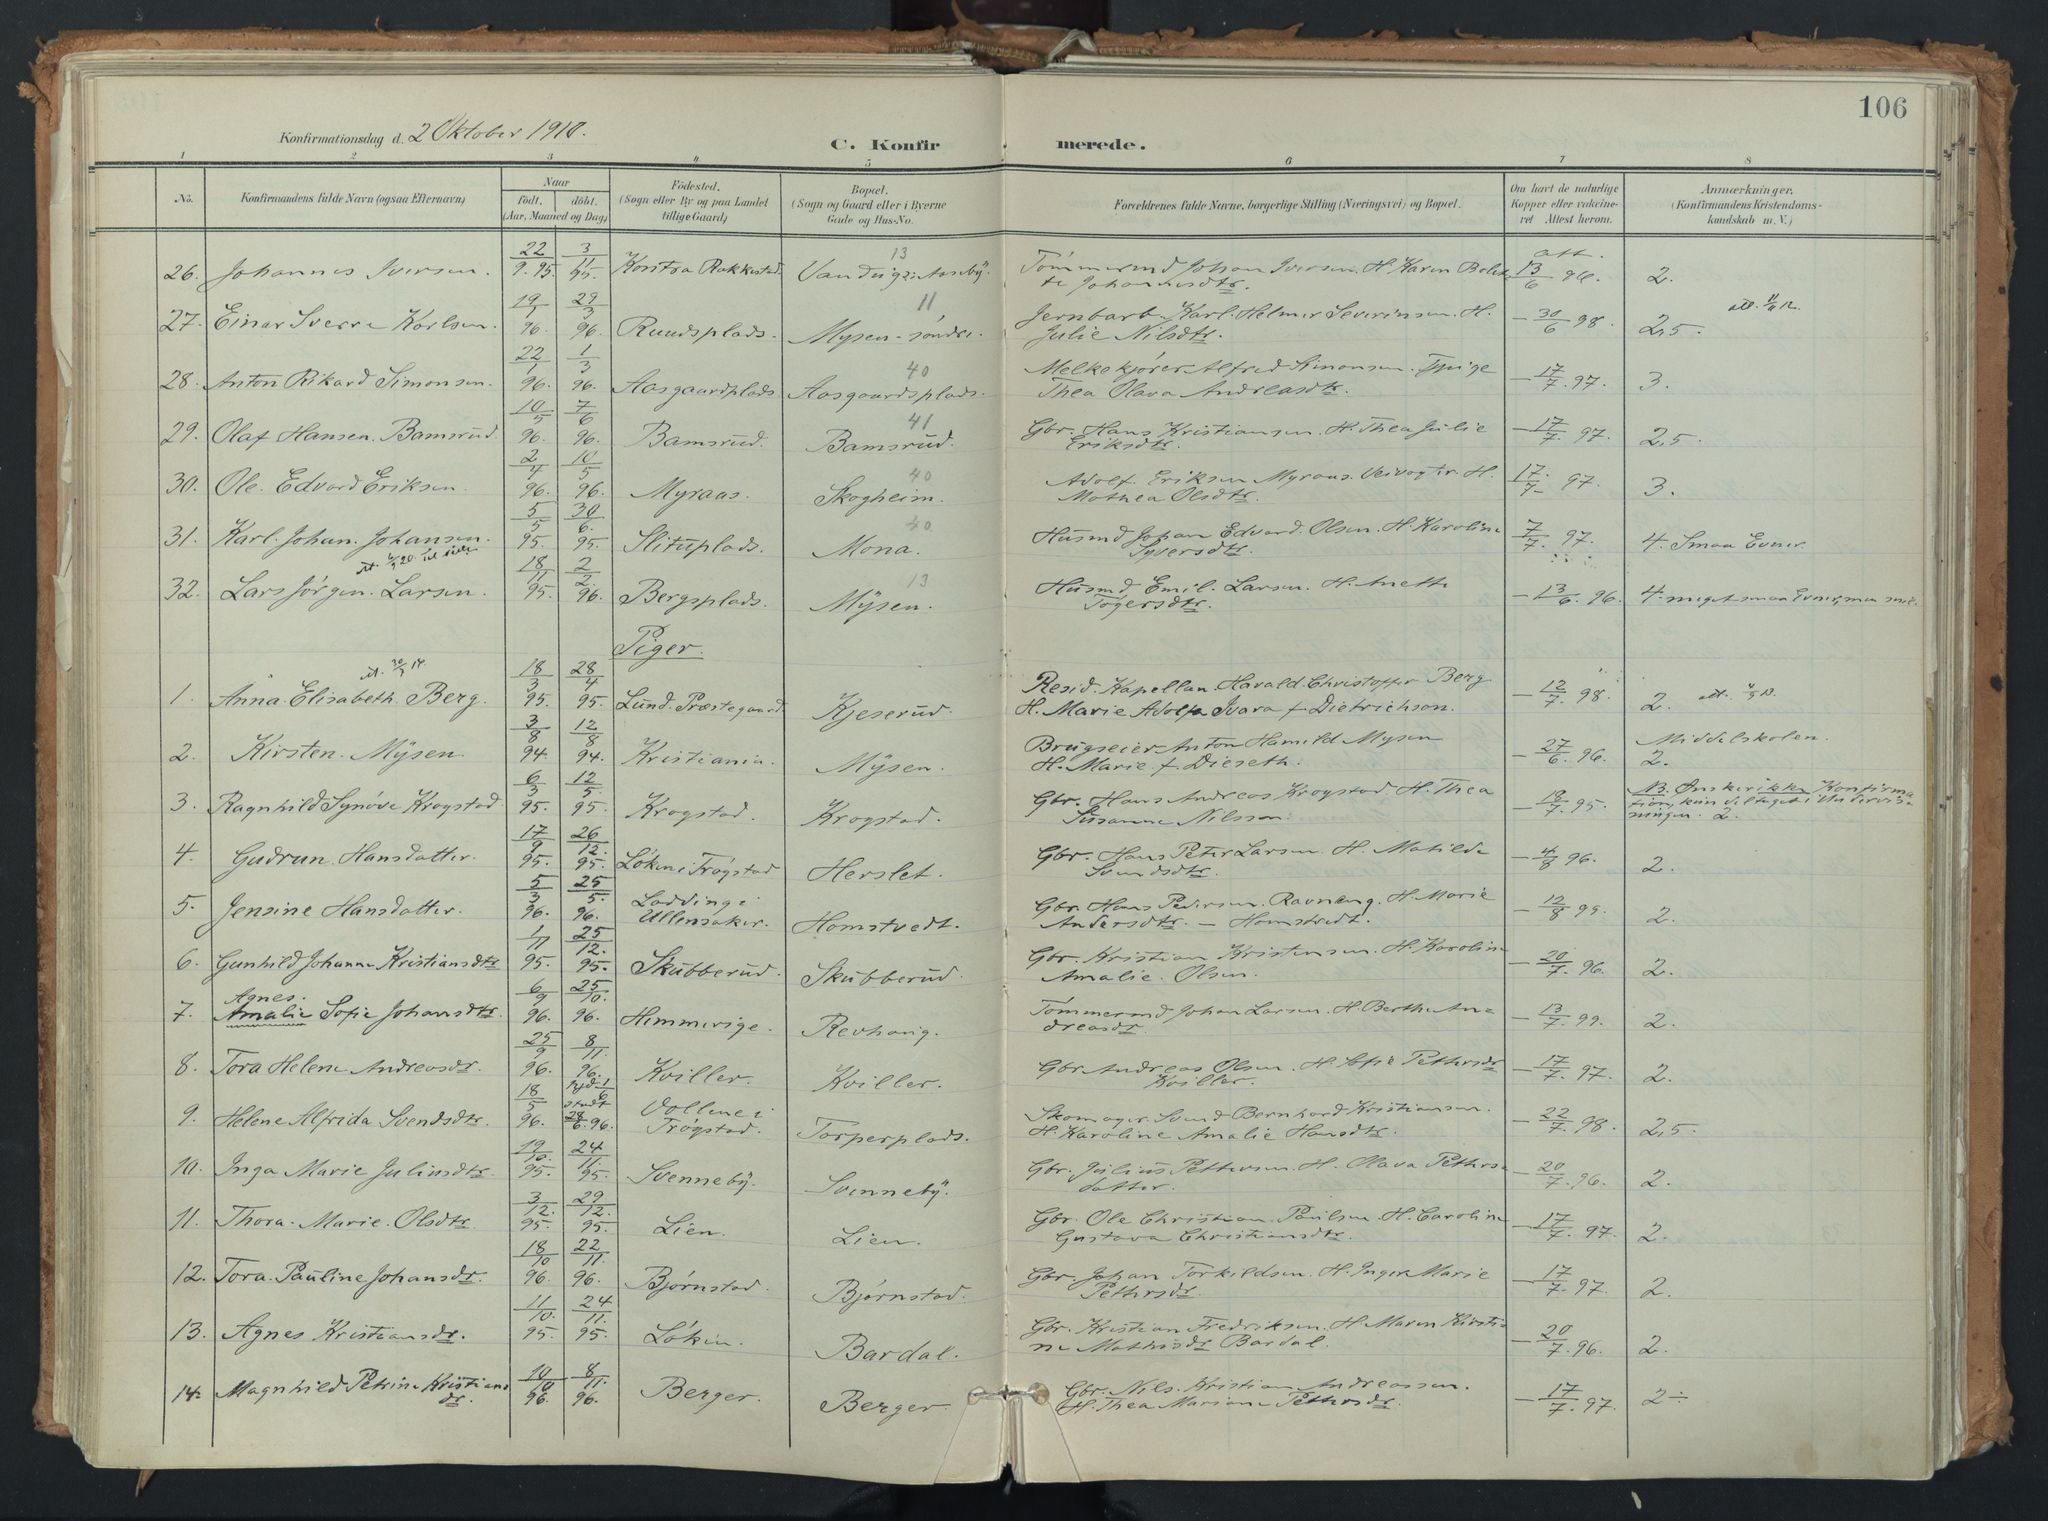 106
Konfirmationsdag d. 2 Oktober 1910.
C. Konfirmerede.
1 2 3 4 5 6 7 8
No.
Konfirmandens fulde Navn (ogsaa Efternavn)
Naar
født. døbt.
(Aar, Maaned og Dag)
Fødested.
(Sogn eller By og paa Landet
tillige Gaard)
Bopæl.
(Sogn og Gaard eller i Byerne
Gade og Hus-No.
Forældrenes fulde Navne, borgerlige Stilling (Næringsvei) og Bopæl.
Om havt de naturlige
Kopper eller vakcine-
ret Attest herom.
Anmærkninger.
(Konfirmandens Kristendoms-
kundskab m. V.)
26. Johannes Iversen. 22/9. 95. 3/11 95. Rakkestad. 13 Tømmermd Johan Iversen. H. Karen Johannesdtr. att. 13/6 96. 2.
27. Einar Sverre Karlsen. 19/1 96. 29/3 96. Ruudsplads. 11 Mysen-søndre. Jernbarb. Karl Helmer Severinsen. H. Julie Nilsdtr. — 30/6 98. 2,5.
28. Anton Rikard Simonsen. 22/1 96. 1/3 96. Aasgaardplads. 40 Aasgaardsplads. Melkekjører Alfred Simonsen. Thea Olava Andreasdtr. — 17/7. 97. 3.
29. Olaf Hansen. Bamsrud. 10/5 96. 7/6 96. Bamsrud. 41 Bamsrud. Gbr. Hans Kristiansen. H. Thea Julie Eriksdtr. — 17/7. 97. 2,5.
30. Ole Edvard Eriksen. 2/4 96. 10/5 96. Myraas. 40 Skogheim. Adolf Eriksen Myraas. Veivogtr. H. Mathea Olsdtr. 17/7 97. 3.
31. Karl Johan Johansen. 5/5 95. 30/6. 95. Slituplads. 40 Mona. Husmd Johan Edvard Olsen. H. Karoline Syversdtr. 7/7. 97. 4. Smaa Evner.
32. Lars Jørgen Larsen. 18/11 95. 2/2 96. Bergsplads. 13 Mysen. Husmd Emil Larsen. H. Anette Togersdtr. — 13/6. 96. 4. meget smaa Evner, men
Piger.
1. Anna Elisabeth Berg. 18/3 95. 28/4 95. Lund. Præstegaard. Kjeserud. Resid. Kapellan Harald Christoffer Berg H. Marie Adolfa Ivara f Dietrichson. — 12/7 98. 2.
2. Kirsten Mysen 3/8 94. 12/8 94. Kristiania. Mysen. Brugseier Anton Hamild Mysen H. Marie f. Dieseth. — 27/6. 96. Middelskolen. 2.
3. Ragnhild Synøve Krogstad. 6/3 95. 12/5 95. Krogstad. Krogstad. Gbr. Hans Andreas Krogstad. H. Thea Susanne Nilssen. — 18/7. 95. NB. Ønsker ikke Konfirmation, kun deltaget i Undervisningen. 2.
4. Gudrun Hansdatter. 17/9 95. 26/12. 95. Løken i Trøgstad Herslet. Gbr. Hans Peter Larsen. H. Matilde Svendsdtr. — 4/8 96. 2.
5. Jensine Hansdatter. 5/3 96. 25/5. 96. Ladding i Ullensaker. Homstvedt. Gbr Hans Pedersen Ravneng. H. Marie Andersdtr. — Homstvedt. — 12/8 99. 2.
6. Gunhild Johanne Kristiansdtr 1/11 95. 25/12. 95. Skubberud. Skubberud. Gbr. Kristian Kristensen. H. Karoline Amalie Olsen. — 20/7. 96. 2.
7. Agnes. Amalie Sofie Johansdtr. 6/9 96. 25/10. 96. Himmerige. Revhaug. Tømmermd Johan Larsen. H. Berthe Andreasdtr. — 13/7. 99. 2.
8. Tora Helene Andreasdtr. 25/9 96. 8/11. 96. Kviller. Kviller. Gbr Andreas Olsen. H. Sofie Pettersdtr Kviller. — 17/7. 97. 2.
9. Helene Alfrida Svendsdtr. 18/5 96. hjd. 1/6 28/6. 96. Vollene i Trøgstad. Torperplads. Skomager Svend Bernhard Kristiansen. H. Karoline Amalie Hansdtr. — 22/7. 98. 2,5.
10. Inga Marie Juliusdtr 19/10. 95. 24/11. 95. Svenneby. Svenneby. Gbr. Julius Pettersen. H. Olava Pettersdatter. — 20/7. 96. 2.
11. Thora Marie Olsdtr. 3/12. 95. 29/12. 95. Lien. Lien. Gbr. Ole Christian Paulsen. H. Caroline Gustava Christiansdtr. — 17/7. 97. 2.
12. Tora Pauline Johansdr. 18/10 96. 22/11. 96. Bjørnstad. Bjørnstad. Gbr. Johan Torkildsen. H. Inger Marie Pettersdr. — 17/7. 97. 2.
13. Agnes Kristiansdr. 11/10. 95. 24/11. 95. Løken. Bardal. Gbr. Kristian Fredriksen. H. Maren Kirstine Mathisdr Bardal. — 20/7. 96. 2.
14. Magnhild Petrine Kristiansdr. 10/10 96. 8/11. 96. Berger. Berger. Gbr. Nils Kristian Andreassen. H. Thea Mariane Pettersdr. — 17/7. 97. 2÷